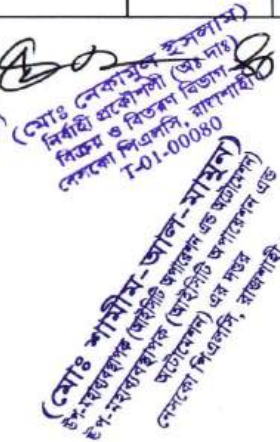 (মোঃ নেকামুল ইসলাম)
নির্বাহী প্রকৌশলী (অঃ দাঃ)
বিক্রয় ও বিতরণ বিভাগ
নেসকো পিএলসি, রাজশাহী
T-01-00080
(মোঃ শামীম-আল-মামুন)
উপ-মহাব্যবস্থাপক (আইসিটি অপারেশন এন্ড অটোমেশন)
উপ-মহাব্যবস্থাপক (আইসিটি অপারেশন এন্ড
অটোমেশন) এর দপ্তর
নেসকো পিএলসি, রাজশাহী